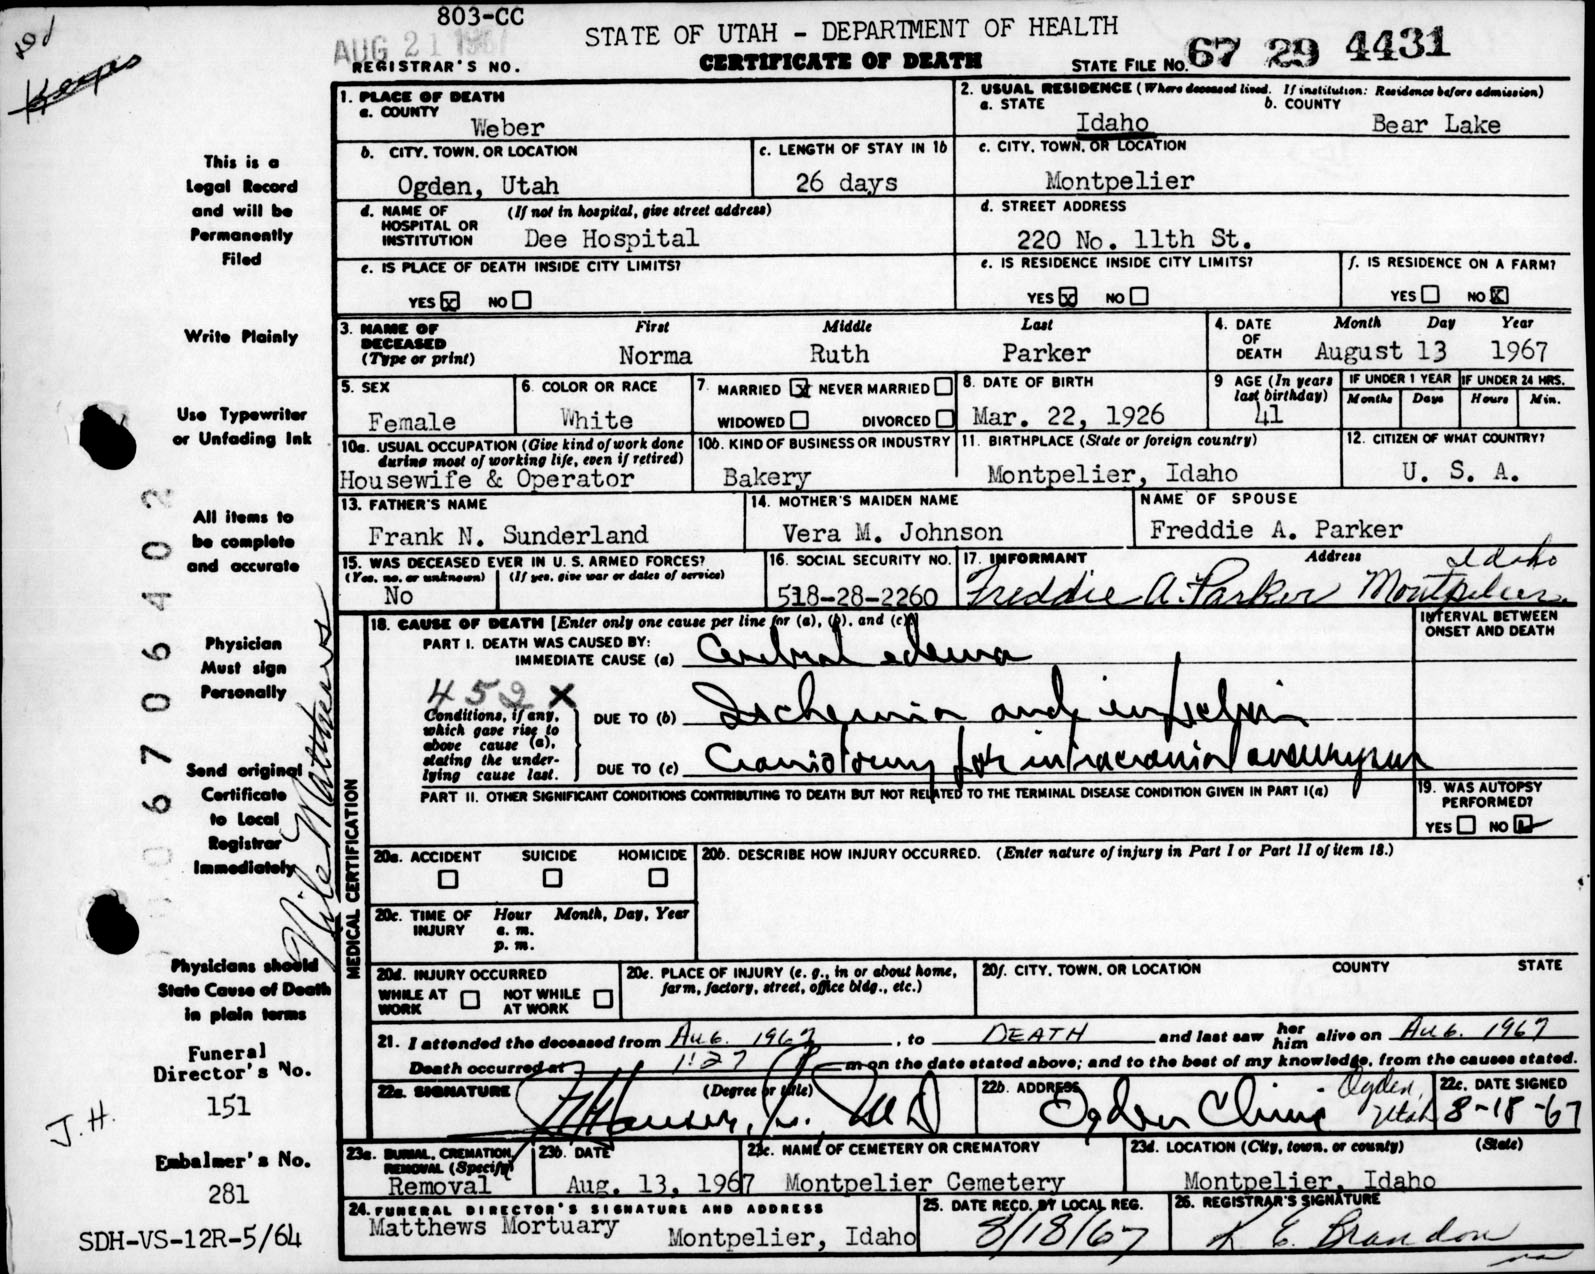 803-CC
AUG 21 1967
REGISTRAR'S NO.
STATE OF UTAH - DEPARTMENT OF HEALTH
CERTIFICATE OF DEATH
STATE FILE NO. 67 29 4431
1. PLACE OF DEATH
a. COUNTY
Weber
2. USUAL RESIDENCE (Where deceased lived. If institution: Residence before admission)
a. STATE
Idaho
b. COUNTY
Bear Lake
b. CITY, TOWN, OR LOCATION
Ogden, Utah
c. LENGTH OF STAY IN 1b
26 days
c. CITY, TOWN, OR LOCATION
Montpelier
d. NAME OF HOSPITAL OR INSTITUTION (If not in hospital, give street address)
Dee Hospital
d. STREET ADDRESS
220 No. 11th St.
e. IS PLACE OF DEATH INSIDE CITY LIMITS?
YES x NO
e. IS RESIDENCE INSIDE CITY LIMITS?
YES x NO
f. IS RESIDENCE ON A FARM?
YES NO x
3. NAME OF DECEASED (Type or print)
First Middle Last
Norma Ruth Parker
4. DATE OF DEATH
Month Day Year
August 13 1967
5. SEX
Female
6. COLOR OR RACE
White
7. MARRIED x NEVER MARRIED
WIDOWED DIVORCED
8. DATE OF BIRTH
Mar. 22, 1926
9 AGE (In years last birthday)
41
IF UNDER 1 YEAR
Months Days
IF UNDER 24 HRS.
Hours Min.
10a. USUAL OCCUPATION (Give kind of work done during most of working life, even if retired)
Housewife & Operator
10b. KIND OF BUSINESS OR INDUSTRY
Bakery
11. BIRTHPLACE (State or foreign country)
Montpelier, Idaho
12. CITIZEN OF WHAT COUNTRY?
U. S. A.
13. FATHER'S NAME
Frank N. Sunderland
14. MOTHER'S MAIDEN NAME
Vera M. Johnson
NAME OF SPOUSE
Freddie A. Parker
15. WAS DECEASED EVER IN U. S. ARMED FORCES?
(Yes, no, or unknown) (If yes, give war or dates of service)
No
16. SOCIAL SECURITY NO.
518-28-2260
17. INFORMANT Address
Freddie A. Parker Montpelier Idaho
18. CAUSE OF DEATH [Enter only one cause per line for (a), (b), and (c)]
INTERVAL BETWEEN ONSET AND DEATH
PART I. DEATH WAS CAUSED BY:
IMMEDIATE CAUSE (a) Cerebral edema
452 X
Conditions, if any, which gave rise to above cause (a), stating the underlying cause last.
DUE TO (b) Ischemia and
DUE TO (c) Craniotomy for intracranial aneurysm
PART II. OTHER SIGNIFICANT CONDITIONS CONTRIBUTING TO DEATH BUT NOT RELATED TO THE TERMINAL DISEASE CONDITION GIVEN IN PART I(a)
19. WAS AUTOPSY PERFORMED?
YES NO
MEDICAL CERTIFICATION
20a. ACCIDENT SUICIDE HOMICIDE
20b. DESCRIBE HOW INJURY OCCURRED. (Enter nature of injury in Part I or Part II of item 18.)
20c. TIME OF INJURY Hour Month, Day, Year
a. m.
p. m.
20d. INJURY OCCURRED
WHILE AT WORK NOT WHILE AT WORK
20e. PLACE OF INJURY (e. g., in or about home, farm, factory, street, office bldg., etc.)
20f. CITY, TOWN, OR LOCATION COUNTY STATE
21. I attended the deceased from Aug. 1967, to DEATH and last saw her him alive on Aug. 1967
Death occurred at 1:27 P m on the date stated above; and to the best of my knowledge, from the causes stated.
22a. SIGNATURE (Degree or title)
Hauser, Jr., M D
22b. ADDRESS
Ogden Clinic Ogden, Utah
22c. DATE SIGNED
8-18-67
23a. BURIAL, CREMATION, REMOVAL (Specify)
Removal
23b. DATE
Aug. 13, 1967
23c. NAME OF CEMETERY OR CREMATORY
Montpelier Cemetery
23d. LOCATION (City, town, or county) (State)
Montpelier, Idaho
24. FUNERAL DIRECTOR'S SIGNATURE AND ADDRESS
Matthews Mortuary Montpelier, Idaho
25. DATE RECD. BY LOCAL REG.
8/18/67
26. REGISTRAR'S SIGNATURE
E. Brandon
This is a
Legal Record
and will be
Permanently
Filed
Write Plainly
Use Typewriter
or Unfading Ink
All items to
be complete
and accurate
Physician
Must sign
Personally
Send original
Certificate
to Local
Registrar
Immediately
Physicians should
State Cause of Death
in plain terms
Funeral
Director's No.
151
J.H.
Embalmer's No.
281
SDH-VS-12R-5/64
Nile Matthews